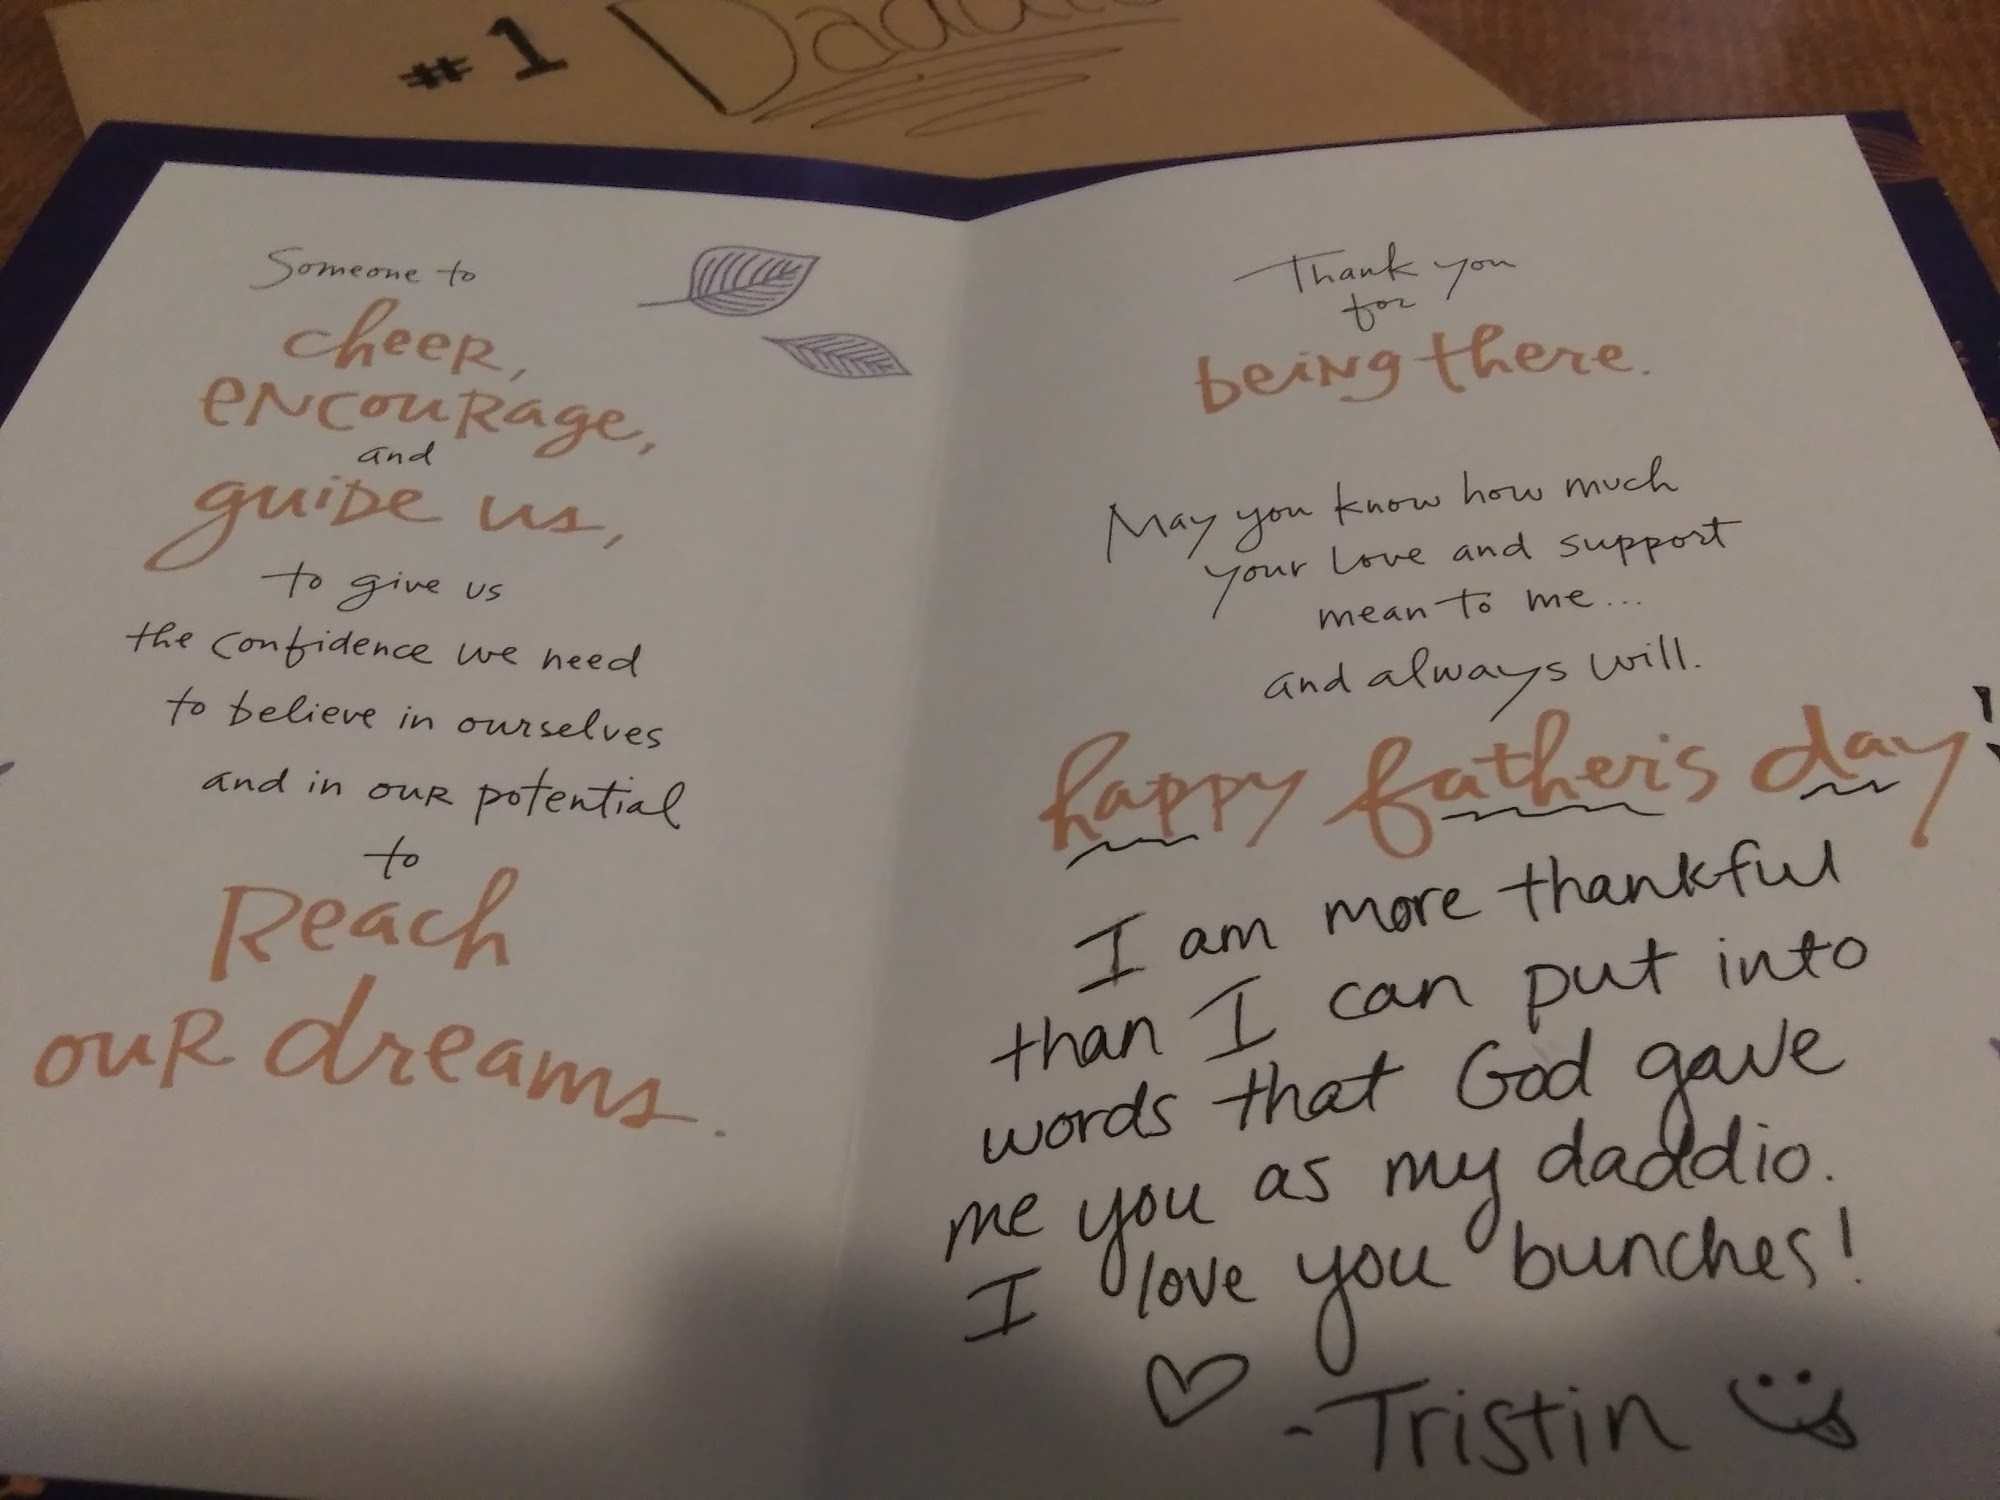 #1 Daddio
Someone to
cheer,
encourage,
and
guide us,
to give us
the confidence we need
to believe in ourselves
and in our potential
to
Reach
our dreams.
Thank you
for
being there.
May you know how much
your love and support
mean to me...
and always will.
happy father's day!
I am more thankful
than I can put into
words that God gave
me you as my daddio.
I love you bunches!
♡ -Tristin